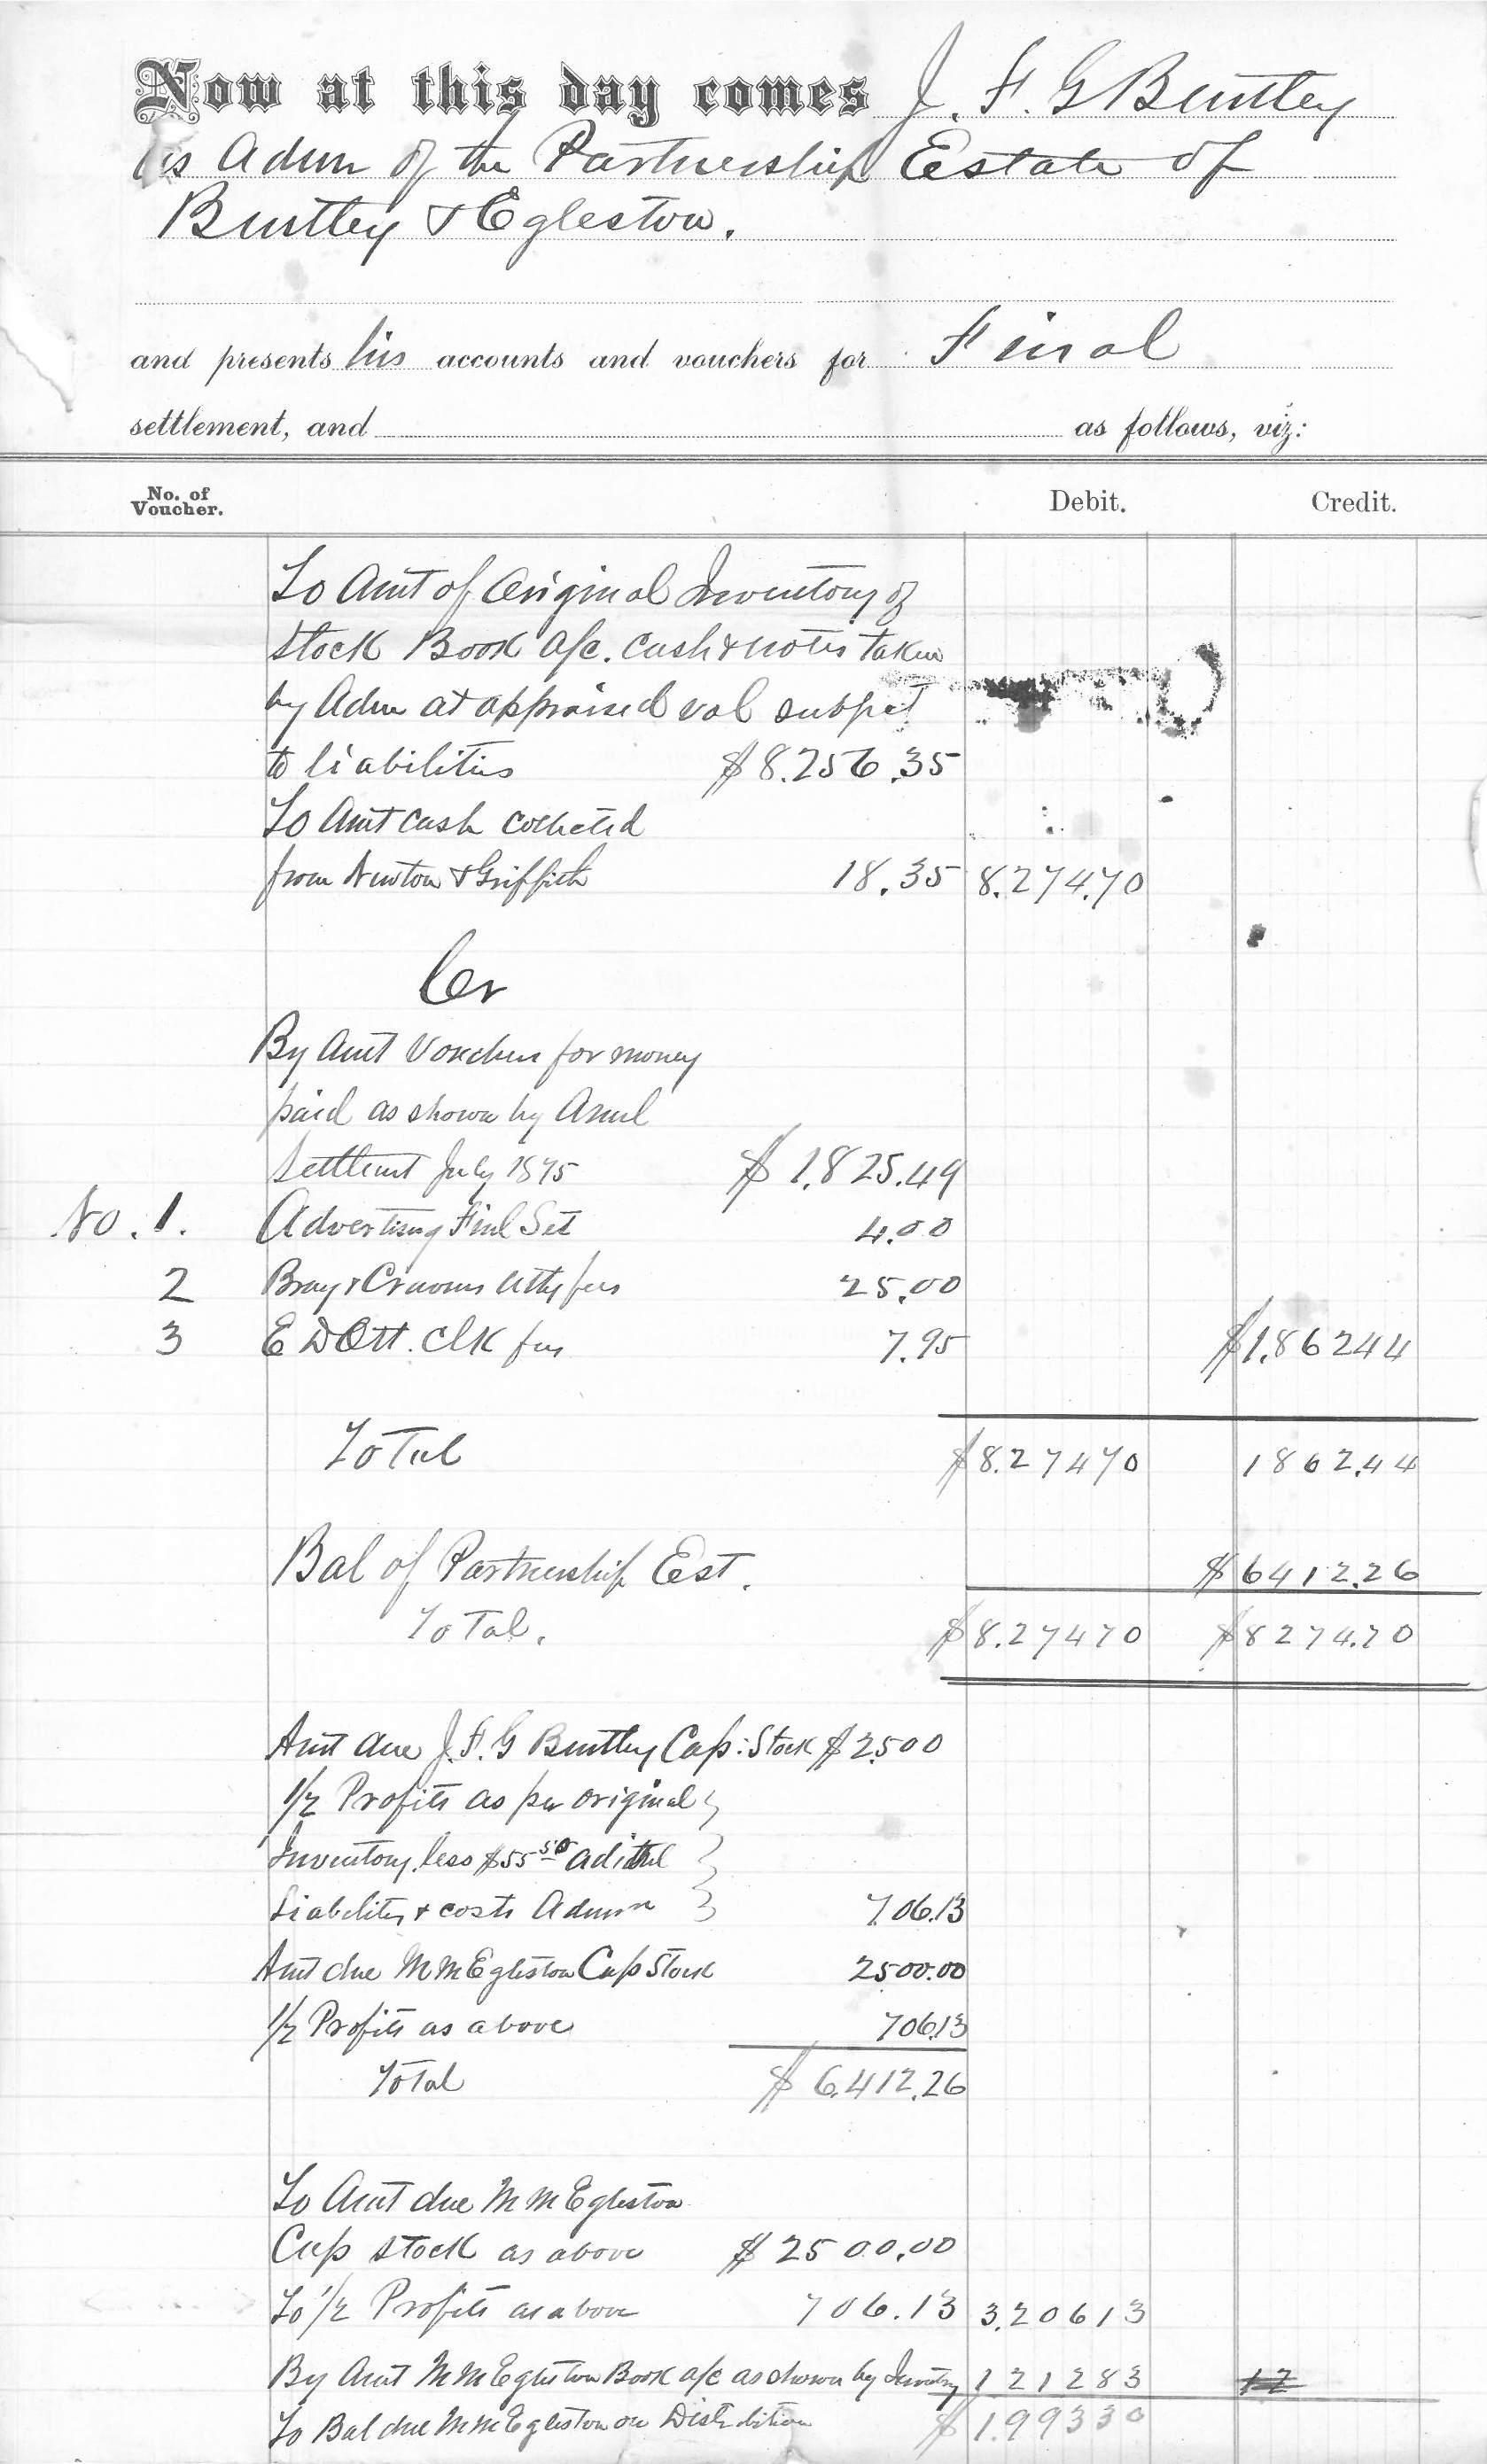 Now at this day comes J. F. G Bentley
as Admr of the Partnership Estate of
Bentley & Egleston.
and presents his accounts and vouchers for Final
settlement, and as follows, viz:
No. of Voucher. Debit. Credit.
To Amt of Original Inventory of
Stock Book a/c. Cash & notes taken
by Admr at appraised val subject
to liabilities $8.256.35
To Amt Cash Collected
from Newton & Griffith 18.35 8.274.70
Cr
By Amt Vouchers for money
paid as shown by Anul
Settlemt July 1875 $1,825.49
No. 1. Advertising Finl Set 4.00
2 Bray & Cravens Atty fees 25.00
3 E D Ott. Clk fees 7.95 $1.86244
Total $8.27470 1862.44
Bal of Partnership Est. $6412.26
Total. $8.27470 $8274.70
Amt due J. F. G Bentley Cap: Stock $2500
1/2 Profits as per original
Inventory less $55 50 aditnl
Liability & costs Admn 706.13
Amt due M M Egleston Cap Stock 2500.00
1/2 Profits as above 706.13
Total $6.412.26
To Amt due M M Egleston
Cap stock as above $2500.00
To 1/2 Profits as above 706.13 3.20613
By Amt M M Egleston Book a/c as shown by Inventry 121283 12
To Bal due M M Egleston on Distribution $1.99330